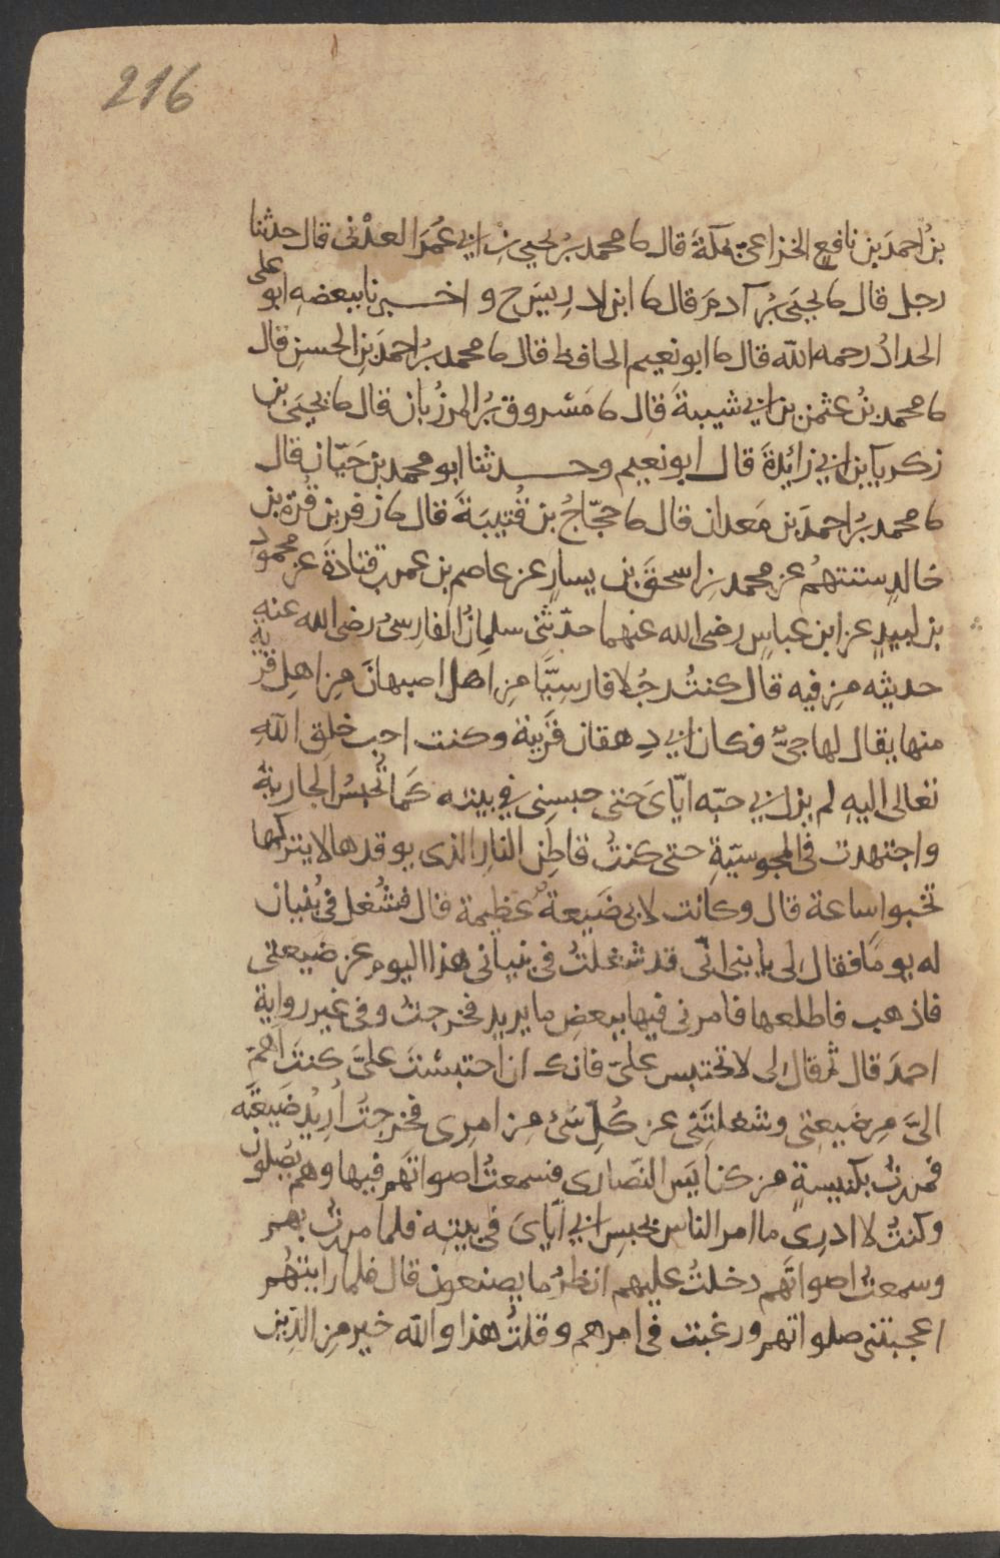 216
بنُ احمدَ بن نافعٍ الخزاعيّ بمكّةَ قال نا محمد بنُ يحيى بنِ ابي عُمرَ العدْنى قال حدثنا
رجل قال نا يحيَى بنُ آدمَ قال نا ابن ادريسَ ح و اخــبرنا ببعضه ابو على
الحدادُ رحمه الله قال نا ابو نعيم الحافظ قال نا محمد بنُ احمدَ بنِ الحسنِ قال
نا محمد بنُ عثمن بن ابي شيبةَ قال نا مَسْروق بنُ المرزُبان قال نا يحيَى بن
زكرياَ بن ابي زائِدةَ قال ابو نعيم وحــدثنا ابو محمد بن حَيّان قال
نا محمد بنُ احمدَ بن مَعدان قال نا حجّاجُ بن قُتيبَةَ قال نا زفر بن قُرّة بن
خالدٍ ستتهُم عن محمد بنِ اسحقَ بن يسارٍ عن عاصم بن عمر بن قتادةَ عن محمود
بن لبيدٍ عن ابن عباسٍ رضى الله عنهما حدّثنى سلمانُ الفارِسىُ رضى الله عنه
حديثه مِن فيه قال كنتُ رجُلا فارسِيًّا مِن اهل اصبهانَ مِن اهلِ قرية
منها يقال لها جىّ وكان ابي دِهقان قَريته وكنت احب خلقِ اللهِ
تعالى اليهِ لم يزل بي حبّه ايّاىَ حتى حبسنِى في بيته كَما تُحبسُ الجارية
واجتهدت فى المجوسيّةِ حتى كنتُ قاطِن النارِ الذى يوقدها لا يتركها
تخبوا ساعة قال وكانت لابى ضَيعةٌ عظيمة قال فشُغل فى بُنيان
له يومًا فقال لى يا بنى انّى قد شغلتُ فى بنيانى هذا اليوم عن ضَيعتى
فاذهب فاطلعها فامرنى فيها ببعضِ ما يريد فخرجتُ وفى غير رواية
احمدَ قال ثم قال لى لا تحتبس علىّ فانك ان احتبستَ علىّ كنتَ اهمّ
الىَّ مِن ضيعتى وشغلتَنى عن كُلّ شىْ مِن امرِى فخرجتُ اُريدُ ضَيعَتَه
فمررتُ بكنيسةٍ من كنايَس النصارى فسمعتُ اصواتَهم فيها وهم يُصلون
وكنتُ لا ادرِى ما امر الناس بحبسِ ابي ايّاىَ فى بيته فلما مررتُ بهم
وسمعتُ اصواتَهم دخلتُ عليهم انظرُ ما يصنعون قال فلما رايتهُم
اعجبتنى صلواتهم ورغبت فى امرهم وقلتُ هذا والله خير مِن الدّين